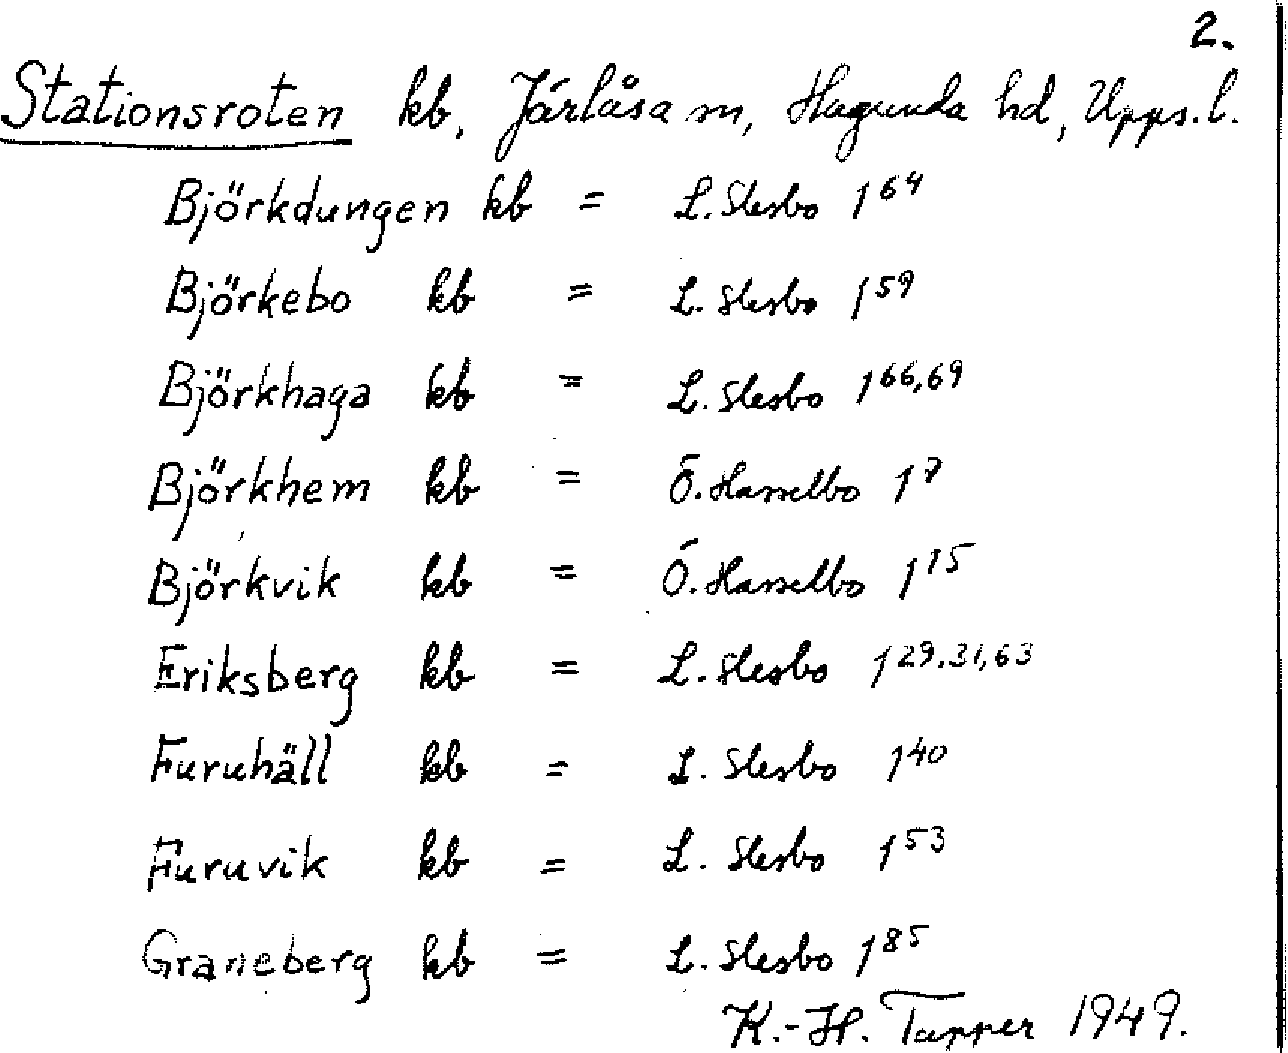 2.
Stationsroten kb, Järlåsa sn, Hagunda hd, Upps. l.
Björkdungen kb = L. Slesbo 1⁶⁴
Björkebo kb = L. Slesbo 1⁵⁹
Björkhaga kb = L. Slesbo 1⁶⁶,⁶⁹
Björkhem kb = Ö. Hasselbo 1⁷
Björkvik kb = Ö. Hasselbo 1¹⁵
Eriksberg kb = L. Slesbo 1²⁹·³¹,⁶³
Furuhäll kb = L. Slesbo 1⁴⁰
Furuvik kb = L. Slesbo 1⁵³
Graneberg kb = L. Slesbo 1⁸⁵
K.-H. Tapper 1949.